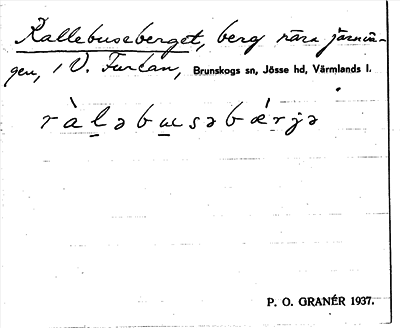 Rallebuseberget, berg nära järnvä-
gen, i V. Furtan, Brunskogs sn, Jösse hd, Värmlands l.
ràləbusəbǽrjə
P. O. GRANÉR 1937.